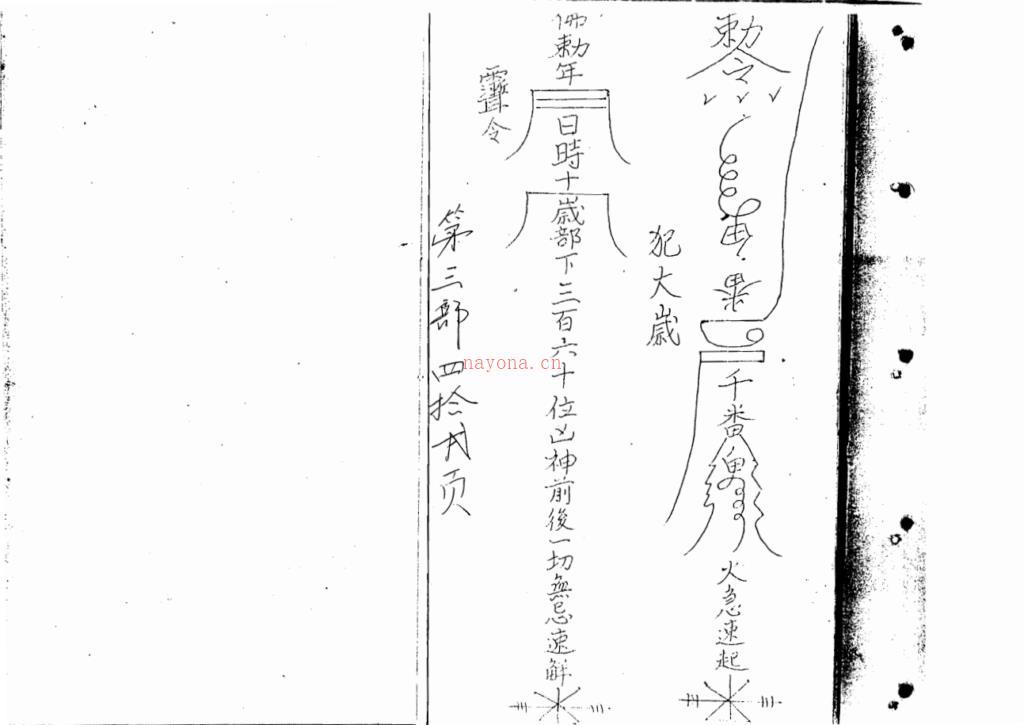 敕令
千番
火急速起
犯大歲
佛敕年
日時十歲部下三百六十位凶神前後一切無忌速解
靈令
第三部四拾 页
nayona.cn